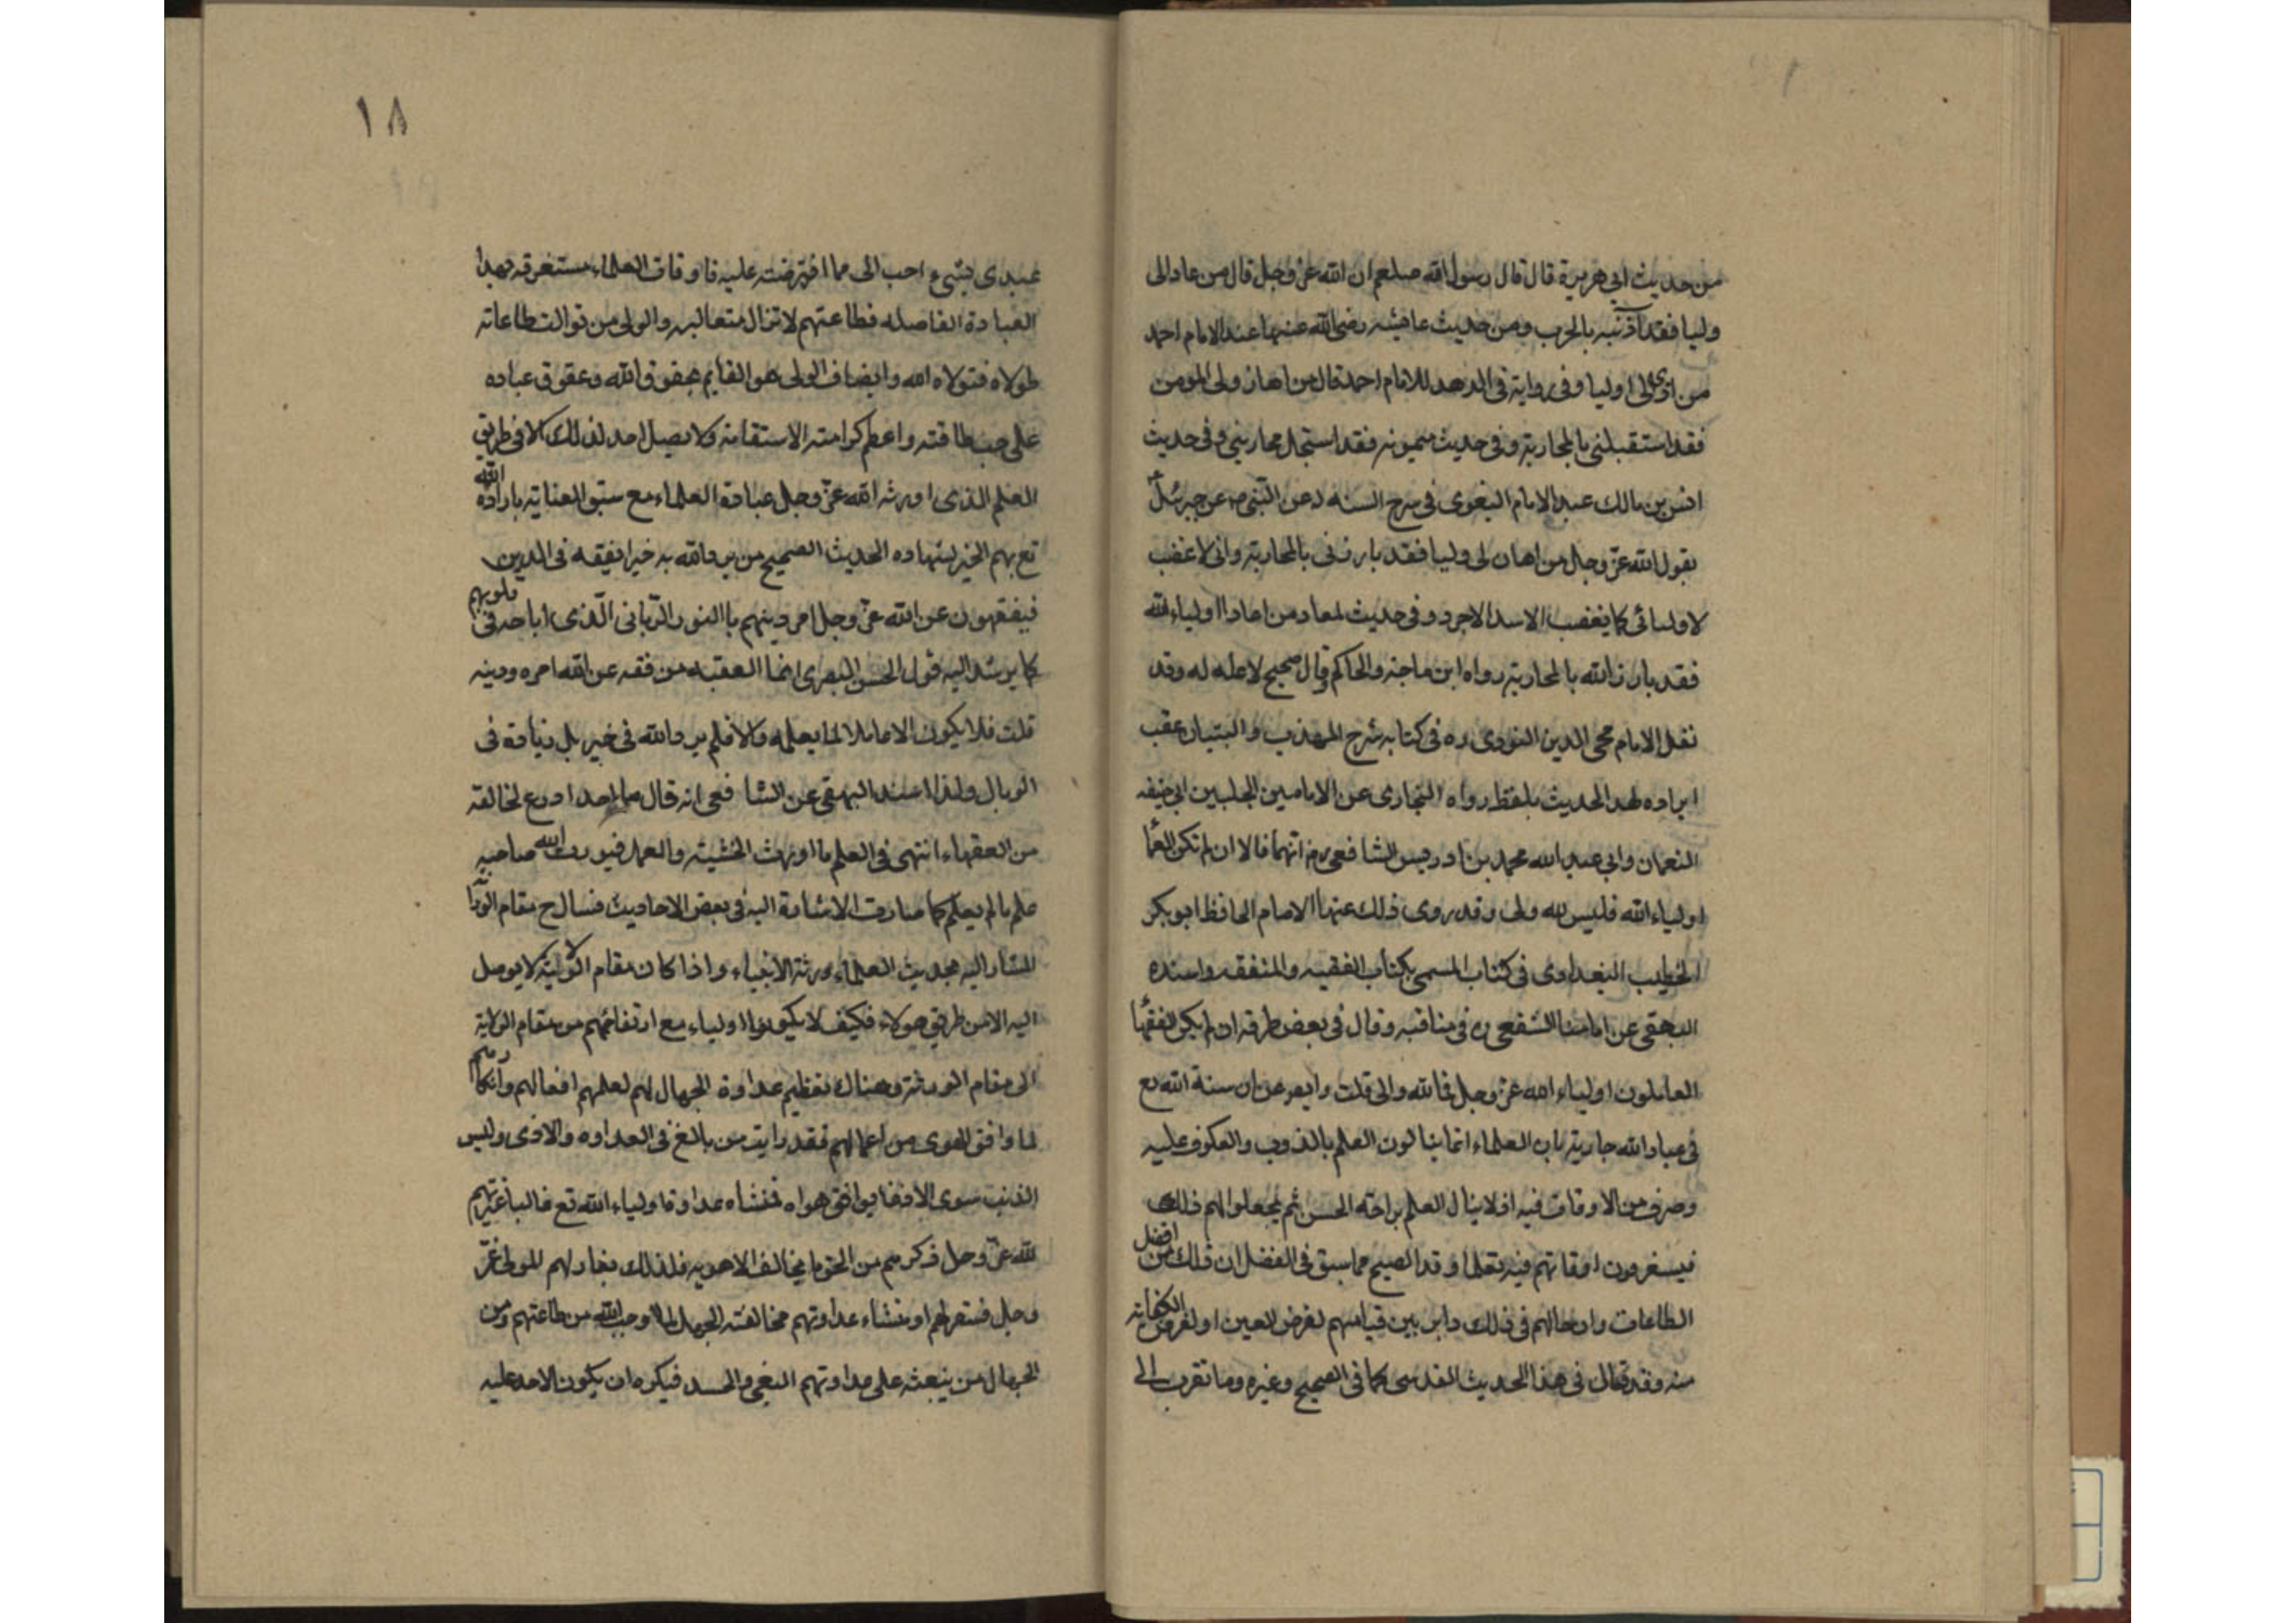 من حديث ابي هريرة قال قال رسول الله صلعم ان الله عز وجل قال من عاد الى
وليا فقد آذنته بالحرب ومن حديث عائشه رضى الله عنها عند الامام احمد
من اذى لى اوليا وفى رواية فى الدهد للامام احمد قال من اهان ولى المومن
فقد استقبلنى بالمحاربة وفى حديث ميمونه فقد استحل محاربتي وفى حديث
انس بن مالك عبد الامام البغوى فى سرح السنه له عن النبى ص عن جبرئل
يقول الله عز وجل من اهان لى وليا فقد بارزنى بالمحاربة وانى لاغضب
لاوليائى كما يغضب الاسد الاجرد وفى حديث لمعاد من اعادا اولياء الله
فقد بارز الله بالمحاربة رواه ابن ماجة والحاكم وقال صحيح لا علة له وقد
نقل الامام محى الدين النووى ره فى كتابه شرح المهذب والتبيان عقب
ايراده لهد الحديث بلفظ رواه البخارى عن الامامين الجلبين ابى حنيفه
النعمان وابي عبد الله محمد بن ادريس الشافعى رض انهما قالا ان لم تكن العلما
اولياء الله فليس لله ولى وقد روى ذلك عنهما الامام الحافظ ابو بكر
الخطيب البغدادى فى كتاب المسمى بكتاب الفقيه والمتفقه واسنده
البهقى عن امامنا الشفعى ر فى مناقبه وقال فى بعض طرقه ان لم يكن الفقها
العاملون اولياء الله عز وجل فالله والى قلت وايصر عن ان سنة الله تع
فى عباد الله جارية بان العلماء انما ينالون العلم بالذوب والعكوف عليه
وصرف من الاوقات فيه اذ لا ينال العلم براحة الحسن ثم يجعلوا لهم ذلك
فيستغرقون اوقاتهم فيه تعلما وقد الصيح مما سبق فى الفضل ان ذلك من افضل
الطاعات وادخالهم فى ذلك دابر بين قيامهم لفرض العين او لفرض الكفاية
منه وقد قال فى هذا الحديث القدسى كما فى الصحيح وغيره وما تقرب الى
١٨
عبدى بشىء احب الى مما افترضته عليه فاوقات العلماء مستغرقه بهدا
العبادة الفاصله فطاعتهم لا تزال متعاليه والولى من توالت طاعاته
لمولاه فتولاه الله وايضاف الولى هو القايم بحقوق الله وعقوق عباده
على حسب طاقته واعظم كرامته الاستقامة ولا يصل احد لذلك الا فى طريق
العلم الذى اورثه الله عز وجل عبادة العلماء مع ستبق العناية بارادة الله
تع بهم الخير لشهاده الحديث الصحيح من يرد الله به خيرا يفقهه فى الدين
فيفقهون عن الله عز وجل امر دينهم باالنور الربانى الذى اباحد فى قلوبهم
كما يرشد اليه قول الحسن البصرى انما الفقيه من فقه عن الله امره ودينه
قلت فلا يكون الا عاملا لما يعلمه والا فلم يرد الله فى خير بل زيادة فى
الوبال ولذا اسند البهقى عن الشافعى انه قال ما احد اورع لخالقه
من الفقهاء انتهى فى العلم ما اورث الخشية والعمل فيورث الله صاحبه
علم مالم يعلم كما صارت الاشارة اليه فى بعض الاحاديث فسالح مقام الورثة
المشار اليه بحديث العلماء ورثة الانبياء واذا كان مقام الولاية لا يوصل
اليه الا من طريق هولاء فكيف لا يكونوا اولياء مع ارتفاعهم من مقام الولاية
الى مقام الورثة وهناك تعظيم عداوة الجهال لهم لعلمهم افعالهم وانكارهم
لما وافق الهوى من اعمالهم فقد رايت من بالغ فى العداوه والاذى وليس
الذنب سوى الافقا يوافق هواه فمنشاه عداوة اولياء الله تع فالباعث لهم
لله عز وجل ذكرهم من الحق ما يخالف الاهويه فلذلك يغار لهم المولى عز
وجل فستعر لهم او منشاء عداوتهم مخالفة الجهال لما اوجب الله من طاعتهم ومن
الجهال من يبعثه على عداوتهم البغى والحسد فيكره ان يكون لاحد عليه